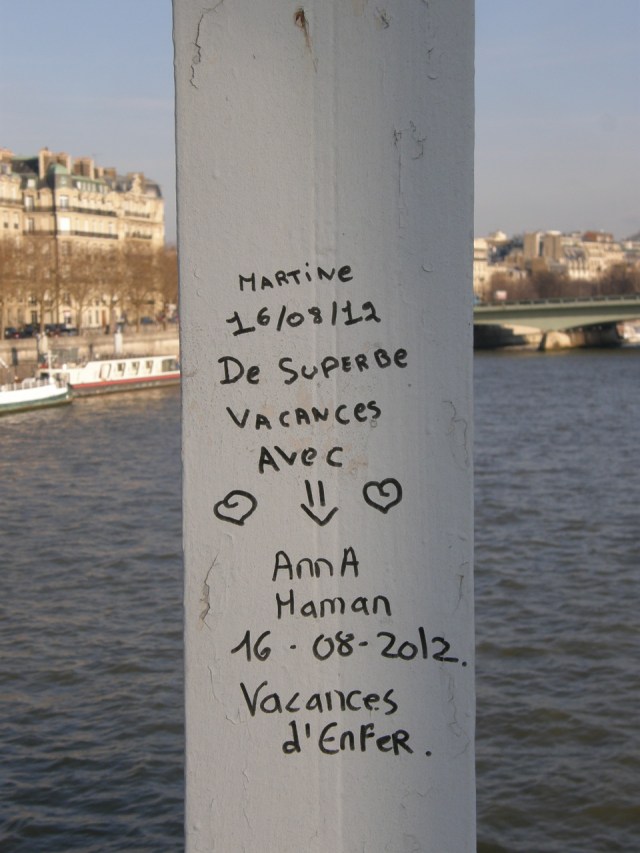 MARTiNe
16/08/12
De SUPERBe
VACANCES
AVeC
AnnA
Maman
16-08-2012.
Vacances
d'EnFeR.